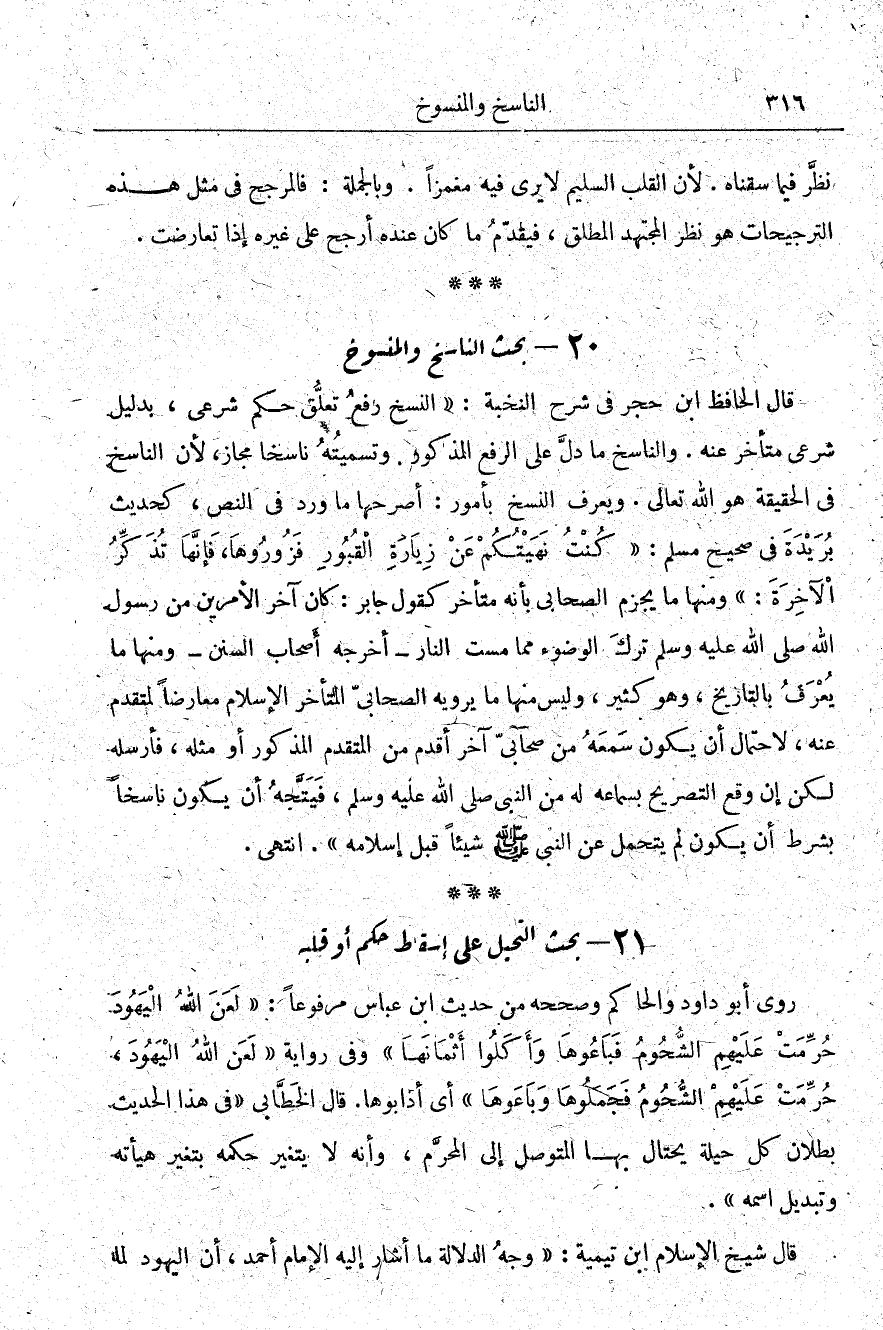 ٣١٦ الناسخ والمنسوخ
نظَّر فيما سقناه . لأن القلب السليم لا يرى فيه مغمزاً . وبالجملة : فالمرجح فى مثل هـذه
الترجيحات هو نظر المجتهد المطلق ، فيقدّمُ ما كان عنده أرجح على غيره إذا تعارضت .
* * *
٢٠ – بحث الناسخ والمنسوخ
قال الحافظ ابن حجر فى شرح النخبة : « النسخ رفعُ تعلُّق حكم شرعى ، بدليل
شرعى متأخر عنه . والناسخ ما دلَّ على الرفع المذكور . وتسميتُهُ ناسخا مجاز، لأن الناسخ
فى الحقيقة هو الله تعالى . ويعرف النسخ بأمور : أصرحها ما ورد فى النص ، كحديث
بُرَيْدَةَ فى صحيح مسلم : « كُنْتُ نَهَيْتُكُمْ عَنْ زِيَارَةِ الْقُبُورِ فَزُورُوهَا، فَإِنَّهَا تُذَكِّرُ
الْآخِرَةَ : » ومنها ما يجزم الصحابى بأنه متأخر كقول جابر : كان آخر الأمرين من رسول
الله صلى الله عليه وسلم تركَ الوضوء مما مست النار – أخرجه أصحاب السنن – ومنها ما
يُعْرَفُ بالتاريخ ، وهو كثير ، وليس منها ما يرويه الصحابىّ المتأخر الإسلام معارضاً لمتقدم
عنه ، لاحتمال أن يكون سَمَعَهُ من صحابىّ آخر أقدم من المتقدم المذكور أو مثله ، فأرسله
لكن إن وقع التصريح بسماعه له من النبى صلى الله عليه وسلم ، فَيَتَّجِهُ أن يكون ناسخاً
بشرط أن يكون لم يتحمل عن النبى ﷺ شيئاً قبل إسلامه » . انتهى .
* * *
٢١ – بحث التحيل على إسقاط حكم أو قلبه
روى أبو داود والحاكم وصححه من حديث ابن عباس مرفوعاً : « لَعَنَ اللهُ الْيَهُودَ
حُرِّمَتْ عَلَيْهِمِ الشُّحُومُ فَبَاعُوهَا وَأَكَلُوا أَثْمَانَهَا » وفى رواية « لَعَنَ اللهُ الْيَهُودَ ،
حُرِّمَتْ عَلَيْهِمْ الشُّحُومُ فَجَمَلُوهَا وَبَاعَوهَا » أى أذابوها. قال الخَطَّابى «فى هذا الحديث
بطلان كل حيلة يحتال بهـا المتوصل إلى المحرَّم ، وأنه لا يتغير حكمه بتغير هيأته
وتبديل اسمه » .
قال شيخ الإسلام ابن تيمية : « وجهُ الدلالة ما أشار إليه الإمام أحمد ، أن اليهود لما